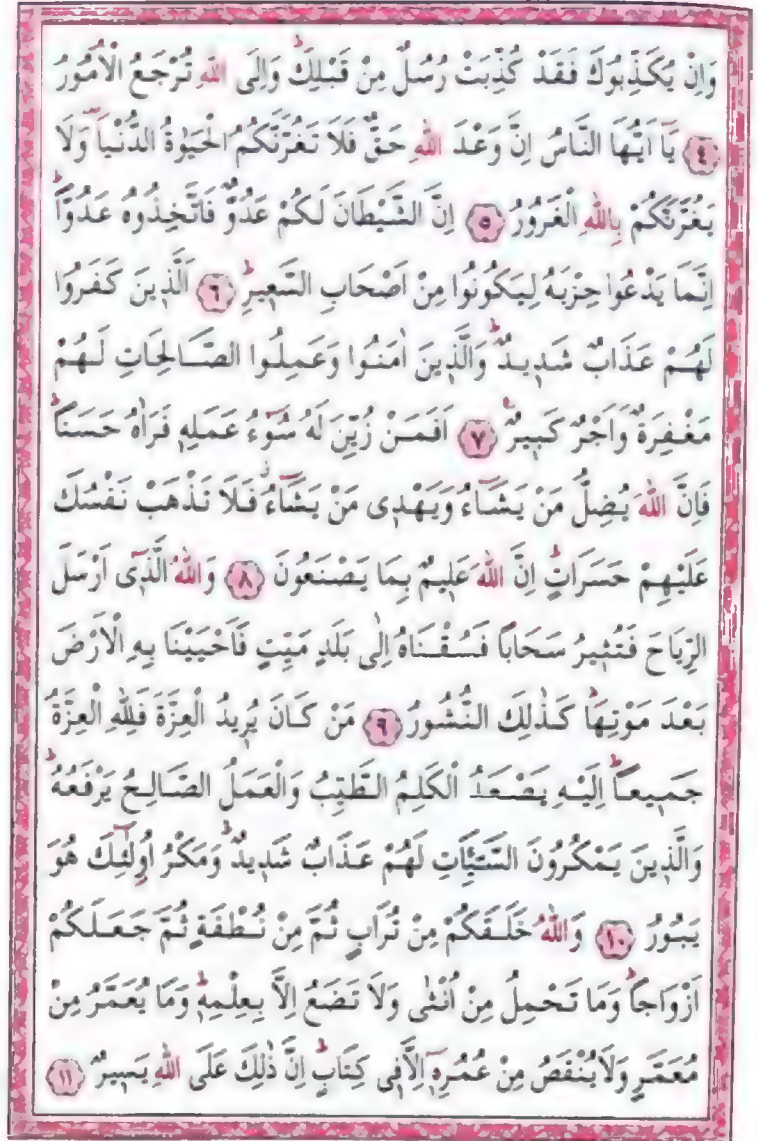 وَاِنْ يُكَذِّبُوكَ فَقَدْ كُذِّبَتْ رُسُلٌ مِنْ قَبْلِكَۜ وَاِلَى اللّٰهِ تُرْجَعُ الْاُمُورُ
﴿٤﴾ يَٓا اَيُّهَا النَّاسُ اِنَّ وَعْدَ اللّٰهِ حَقٌّ فَلَا تَغُرَّنَّكُمُ الْحَيٰوةُ الدُّنْيَا۠ وَلَا
يَغُرَّنَّكُمْ بِاللّٰهِ الْغَرُورُ ﴿٥﴾ اِنَّ الشَّيْطَانَ لَكُمْ عَدُوٌّ فَاتَّخِذُوهُ عَدُوًّاۜ
اِنَّمَا يَدْعُوا حِزْبَهُ لِيَكُونُوا مِنْ اَصْحَابِ السَّعِيرِۜ ﴿٦﴾ اَلَّذِينَ كَفَرُوا
لَهُمْ عَذَابٌ شَدِيدٌۜ وَالَّذِينَ اٰمَنُوا وَعَمِلُوا الصَّالِحَاتِ لَهُمْ
مَغْفِرَةٌ وَاَجْرٌ كَبِيرٌ۟ ﴿٧﴾ اَفَمَنْ زُيِّنَ لَهُ سُٓوءُ عَمَلِهِ فَرَاٰهُ حَسَنًاۜ
فَاِنَّ اللّٰهَ يُضِلُّ مَنْ يَشَٓاءُ وَيَهْدِي مَنْ يَشَٓاءُۘ فَلَا تَذْهَبْ نَفْسُكَ
عَلَيْهِمْ حَسَرَاتٍۜ اِنَّ اللّٰهَ عَلِيمٌ بِمَا يَصْنَعُونَ ﴿٨﴾ وَاللّٰهُ الَّذِٓي اَرْسَلَ
الرِّيَاحَ فَتُثِيرُ سَحَابًا فَسُقْنَاهُ اِلٰى بَلَدٍ مَيِّتٍ فَاَحْيَيْنَا بِهِ الْاَرْضَ
بَعْدَ مَوْتِهَاۜ كَذٰلِكَ النُّشُورُ ﴿٩﴾ مَنْ كَانَ يُرِيدُ الْعِزَّةَ فَلِلّٰهِ الْعِزَّةُ
جَمِيعًاۜ اِلَيْهِ يَصْعَدُ الْكَلِمُ الطَّيِّبُ وَالْعَمَلُ الصَّالِحُ يَرْفَعُهُۜ
وَالَّذِينَ يَمْكُرُونَ السَّيِّـَٔاتِ لَهُمْ عَذَابٌ شَدِيدٌۜ وَمَكْرُ اُو۬لٰٓئِكَ هُوَ
يَبُورُ ﴿١٠﴾ وَاللّٰهُ خَلَقَكُمْ مِنْ تُرَابٍ ثُمَّ مِنْ نُطْفَةٍ ثُمَّ جَعَلَكُمْ
اَزْوَاجًاۜ وَمَا تَحْمِلُ مِنْ اُنْثٰى وَلَا تَضَعُ اِلَّا بِعِلْمِهِۜ وَمَا يُعَمَّرُ مِنْ
مُعَمَّرٍ وَلَا يُنْقَصُ مِنْ عُمُرِهِٓ اِلَّا فِي كِتَابٍۜ اِنَّ ذٰلِكَ عَلَى اللّٰهِ يَسِيرٌ ﴿١١﴾